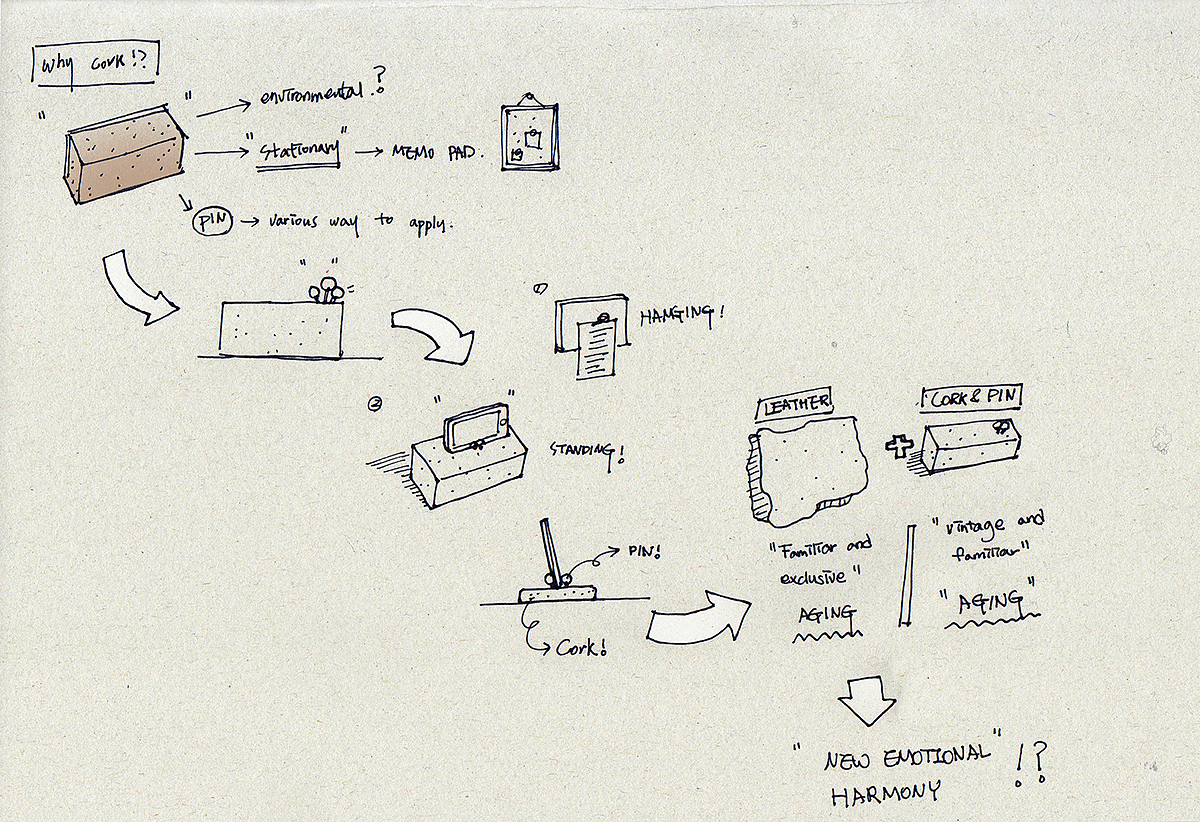 Why cork!?
" "
environmental.?
"Stationary" → MEMO PAD.
PIN → various way to apply.
" "
① HANGING!
② " "
STANDING!
PIN!
Cork!
LEATHER
CORK & PIN
"Familiar and
exclusive"
AGING
"vintage and
familiar"
"AGING"
"NEW EMOTIONAL" !?
HARMONY